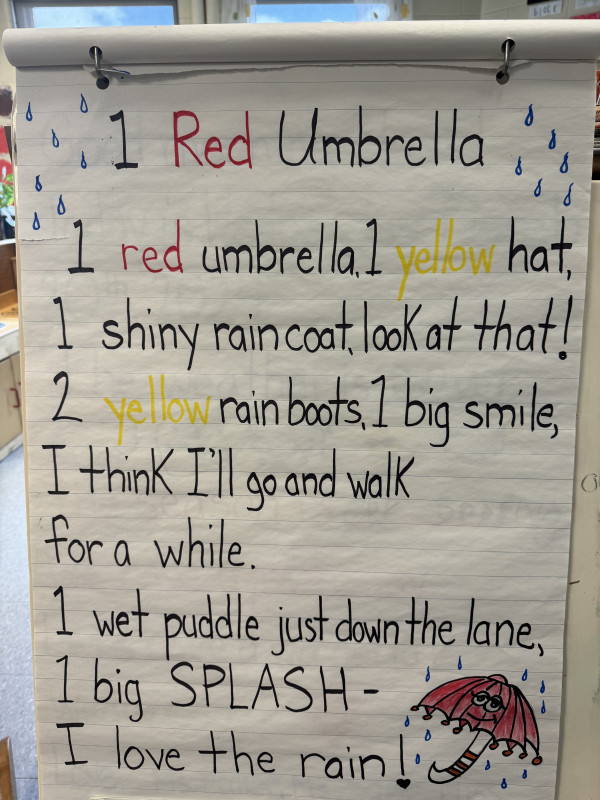 1 Red Umbrella
1 red umbrella, 1 yellow hat,
1 shiny raincoat, look at that!
2 yellow rain boots, 1 big smile,
I think I'll go and walk
for a while.
1 wet puddle just down the lane,
1 big SPLASH-
I love the rain!